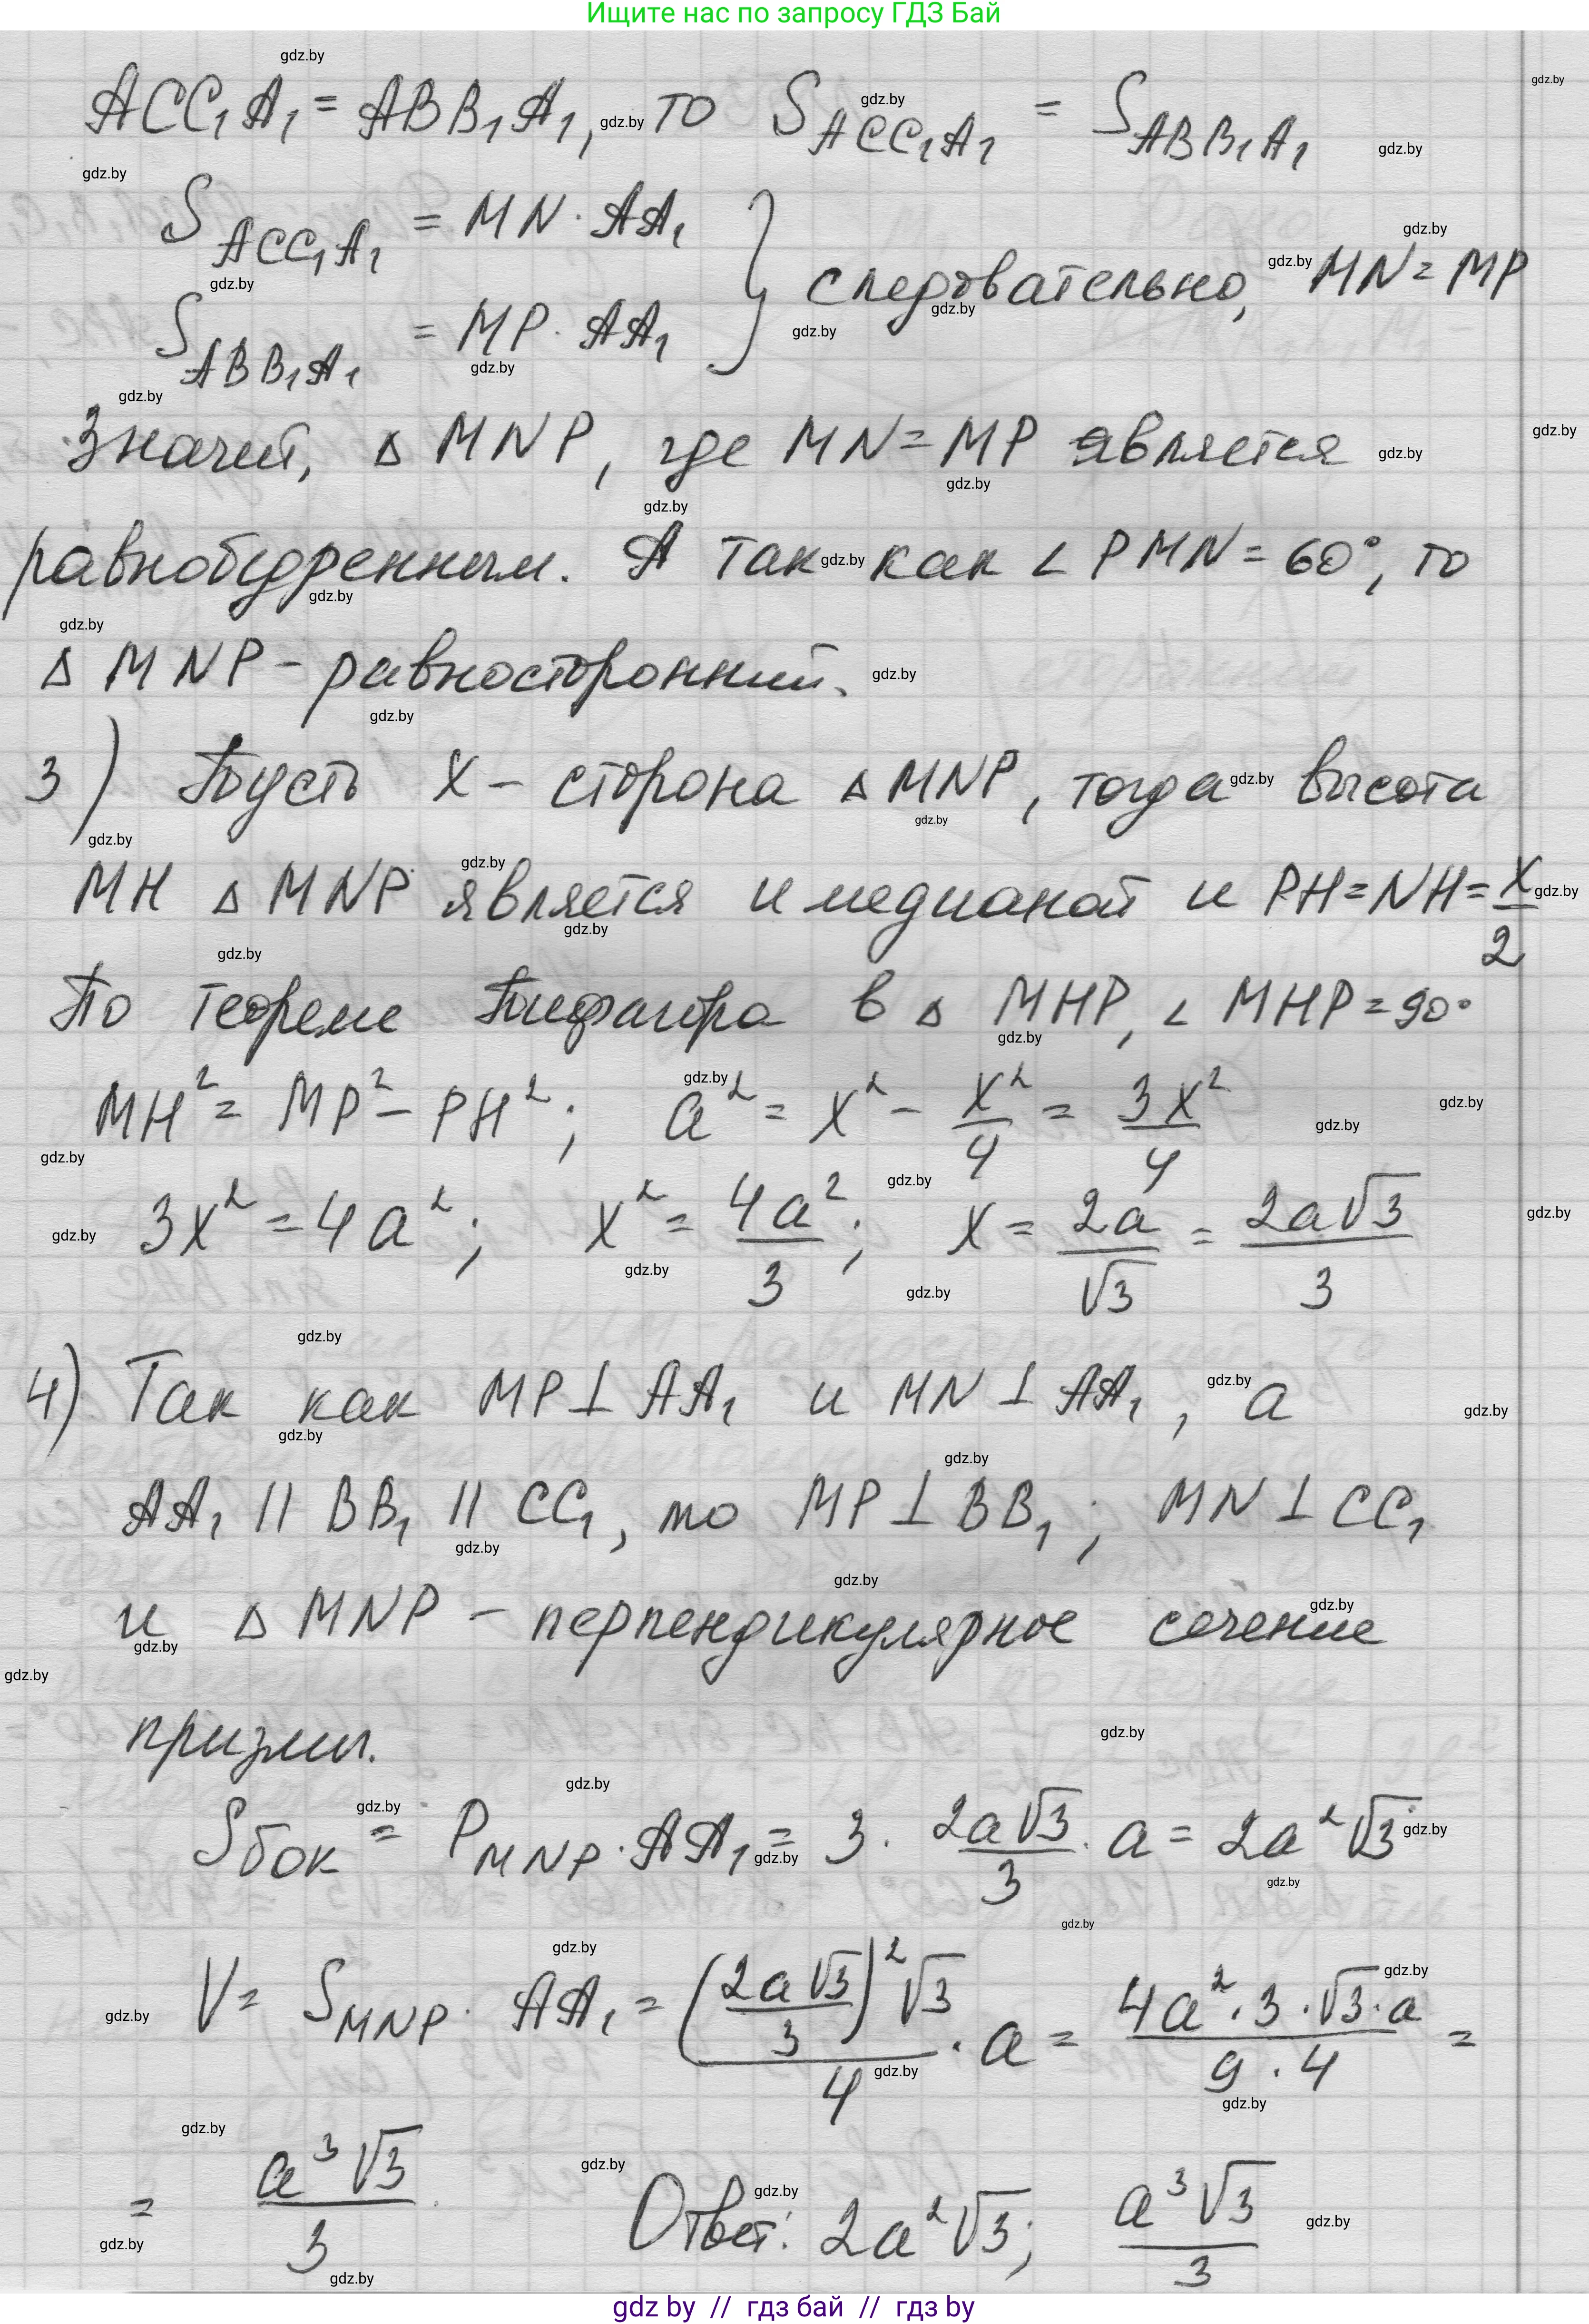 Ищите нас по запросу ГДЗ Бай
ACC₁A₁ = ABB₁A₁, то S_ACC₁A₁ = S_ABB₁A₁
S_ACC₁A₁ = MN · AA₁
S_ABB₁A₁ = MP · AA₁ } следовательно, MN = MP
Значит, Δ MNP, где MN = MP является
равнобедренным. А так как ∠ PMN = 60°, то
Δ MNP - равносторонний.
3) Пусть x - сторона Δ MNP, тогда высота
MH Δ MNP является и медианой и PH = NH = x/2
По теореме Пифагора в Δ MHP, ∠ MHP = 90°
MH² = MP² - PH²; a² = x² - x²/4 = 3x²/4
3x² = 4a²; x² = 4a²/3; x = 2a/√3 = 2a√3/3
4) Так как MP ⊥ AA₁ и MN ⊥ AA₁, а
AA₁ || BB₁ || CC₁, то MP ⊥ BB₁; MN ⊥ CC₁
и Δ MNP - перпендикулярное сечение
призмы.
S_бок = P_MNP · AA₁ = 3 · 2a√3/3 · a = 2a²√3
V = S_MNP · AA₁ = (2a√3/3)²√3/4 · a = 4a² · 3 · √3 · a/9 · 4 =
= a³√3/3 Ответ: 2a²√3; a³√3/3
gdz by // гдз бай // гдз by